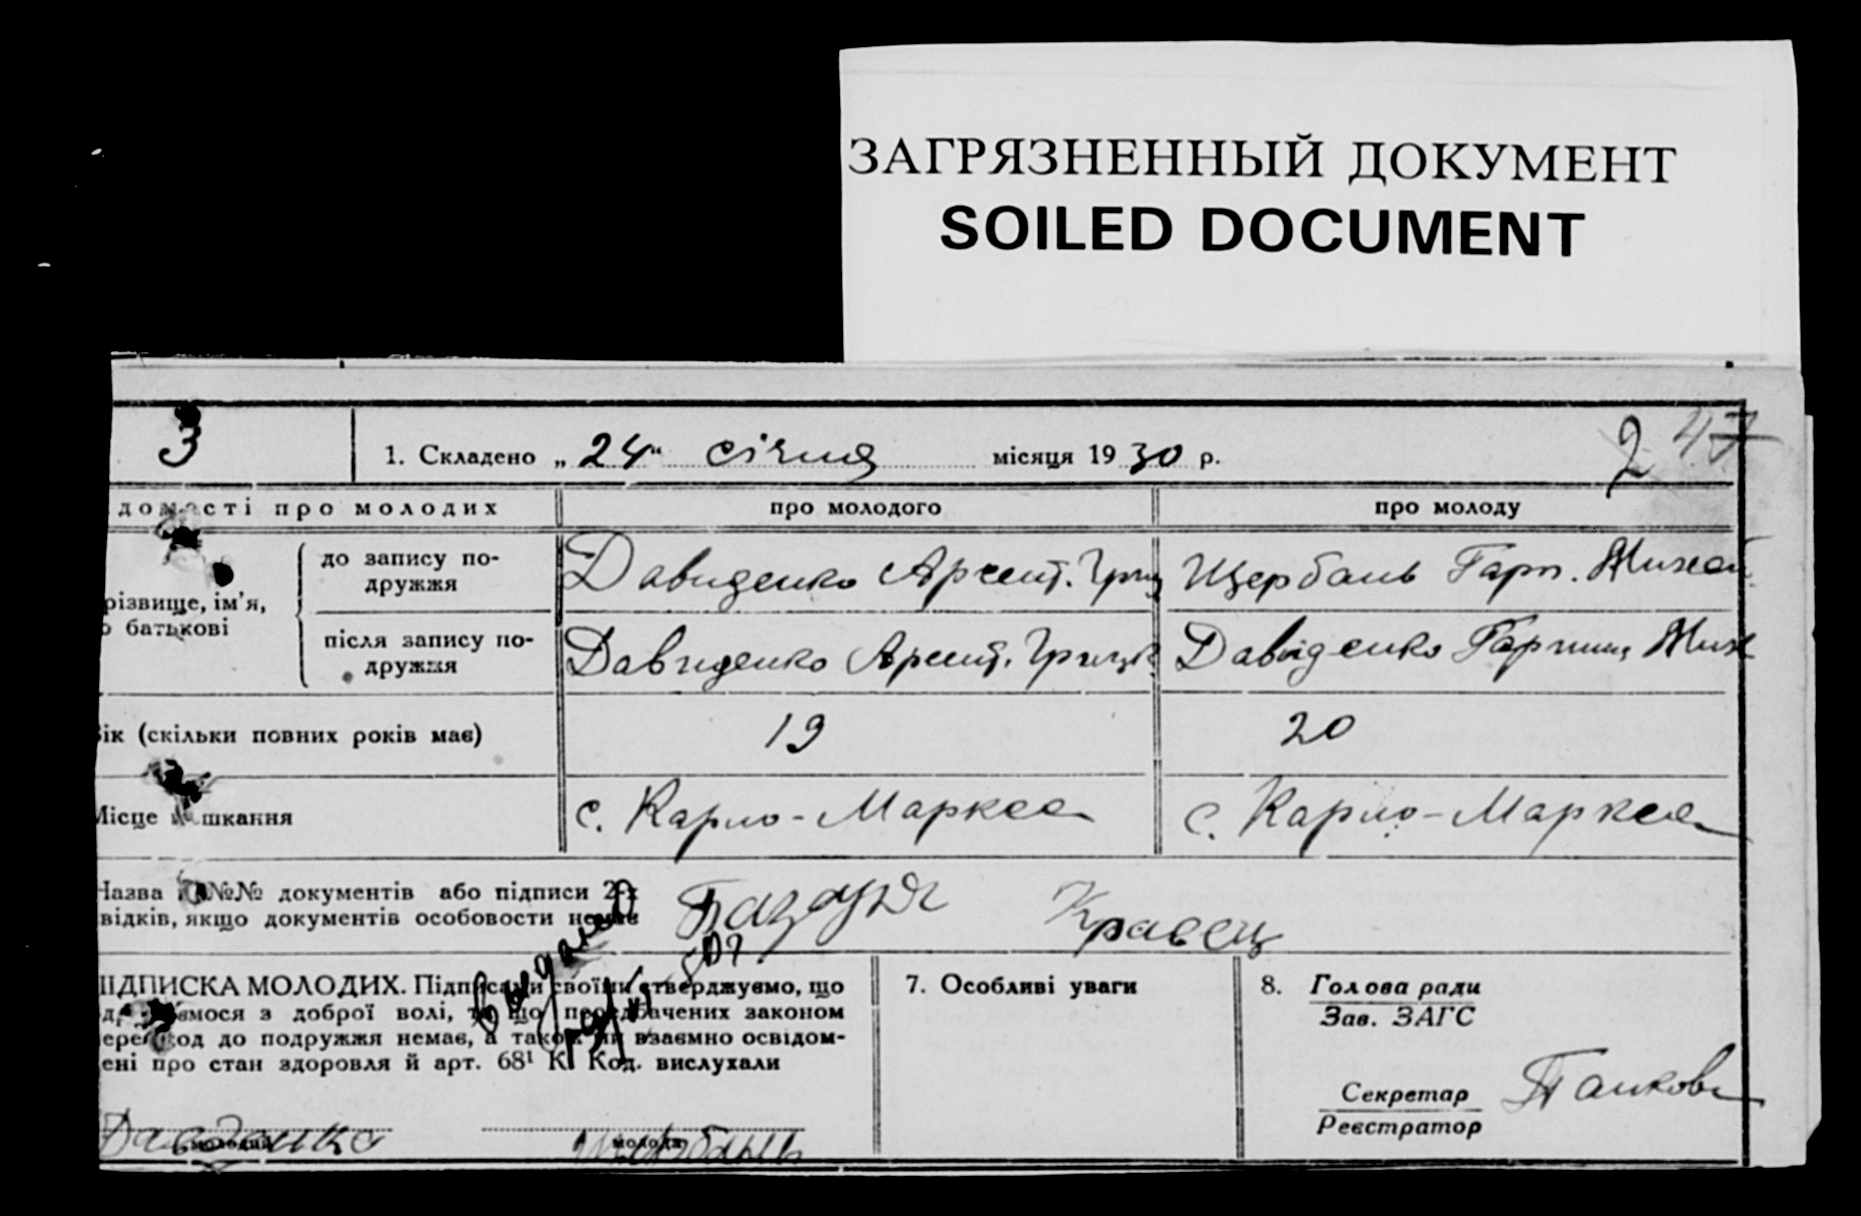 ЗАГРЯЗНЕННЫЙ ДОКУМЕНТ
SOILED DOCUMENT
3
1. Складено „24“ січня місяця 1930 р.
2 47
домості про молодих
про молодого
про молоду
різвище, ім'я,
о батькові
до запису по-
дружжя
Давиденко Арсент. Гриц
Щербань Гарп. Михай.
після запису по-
дружжя
Давиденко Арсент. Грицьк.
Давіденко Гарпина Мих
ік (скільки повних років має)
19
20
Місце шкання
с. Карло-Маркса
с. Карло-Маркса
Назва №№ документів або підписи 2-х
відків, якщо документів особовости немає
Кравец
ПІДПИСКА МОЛОДИХ. Підписами своїми стверджуємо, що
ємося з доброї волі, та що передбачених законом
ерешкод до подружжя немає, а також ми взаємно освідом-
ені про стан здоров'я й арт. 68¹ К. Код. вислухали
Давиденко
молодий
Щербань
молода
7. Особливі уваги
8. Голова ради
Зав. ЗАГС
Секретар
Реєстратор